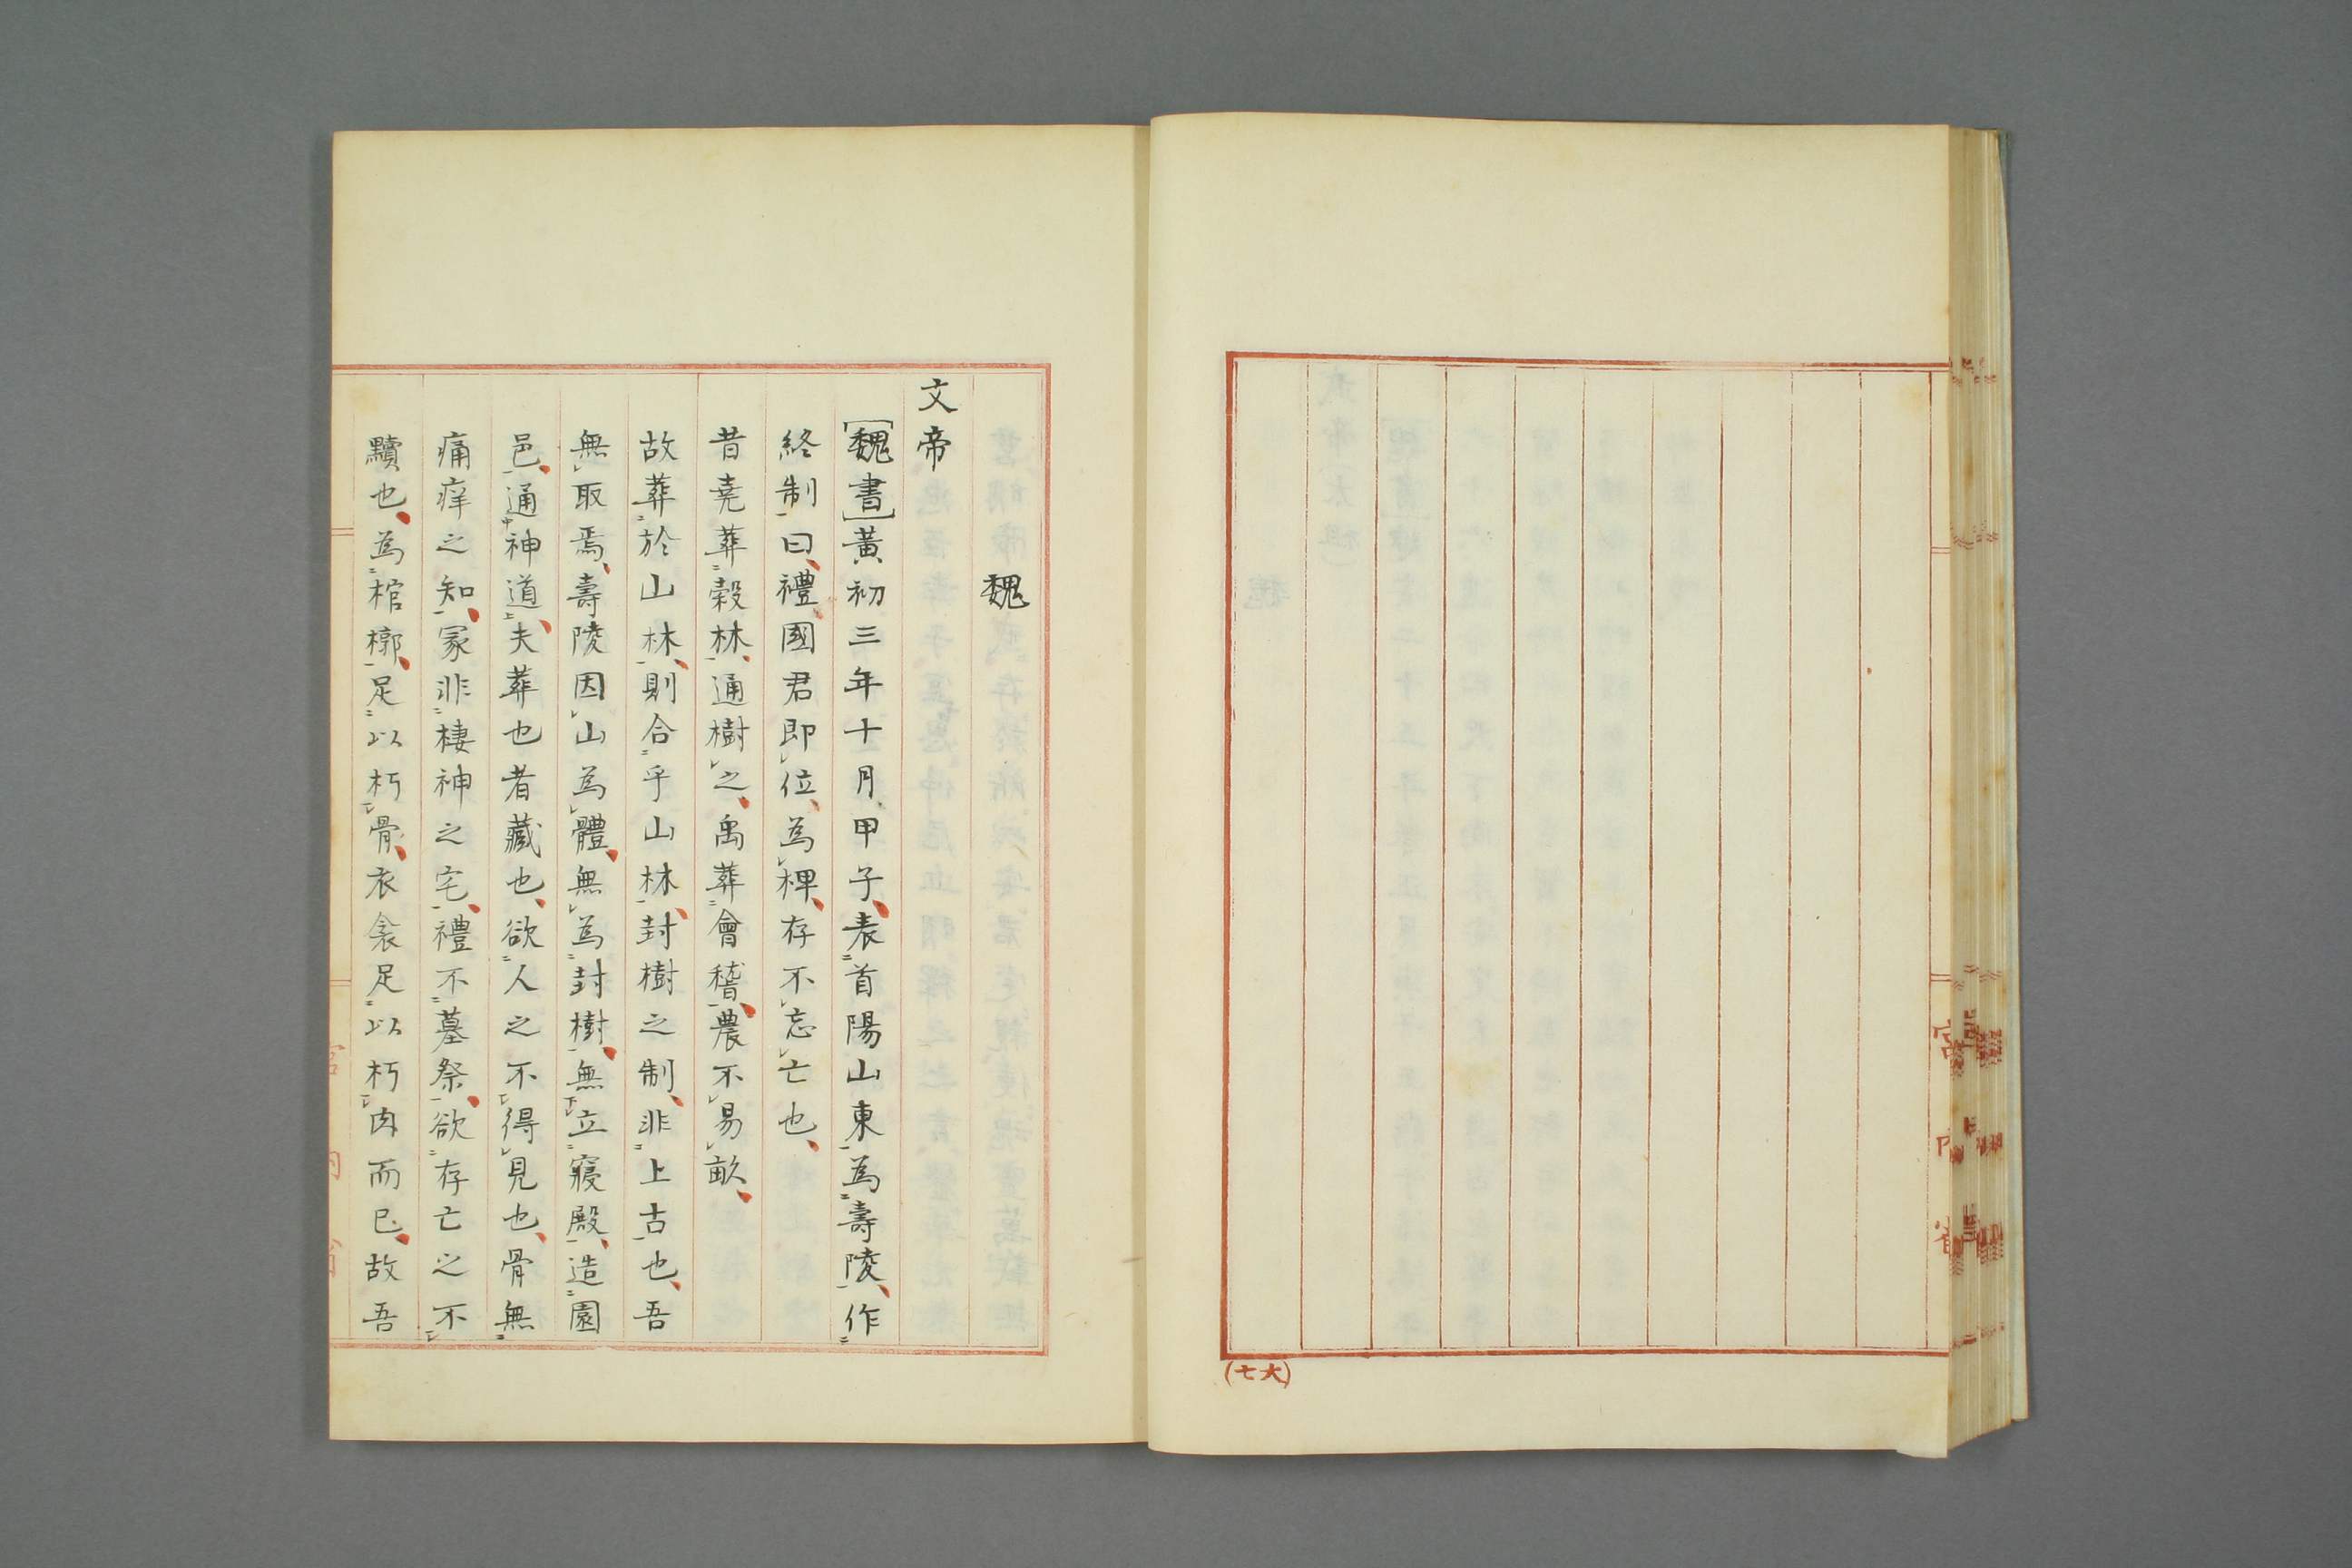 (七大)
宮内省
魏
文帝
[魏書]黃初三年十月、甲子、表首陽山東為壽陵、作
終制曰、禮、國君即位、為椑、存不忘亡也、
昔堯葬穀林、通樹之、禹葬會稽、農不易畝、
故葬於山林、則合乎山林、封樹之制、非上古也、吾
無取焉、壽陵因山為體、無為封樹、無立寢殿、造園
邑、通神道、夫葬也者藏也、欲人之不得見也、骨無
痛痒之知、冢非棲神之宅、禮不墓祭、欲存亡之不
黷也、為棺槨、足以朽骨、衣衾足以朽肉而已、故吾